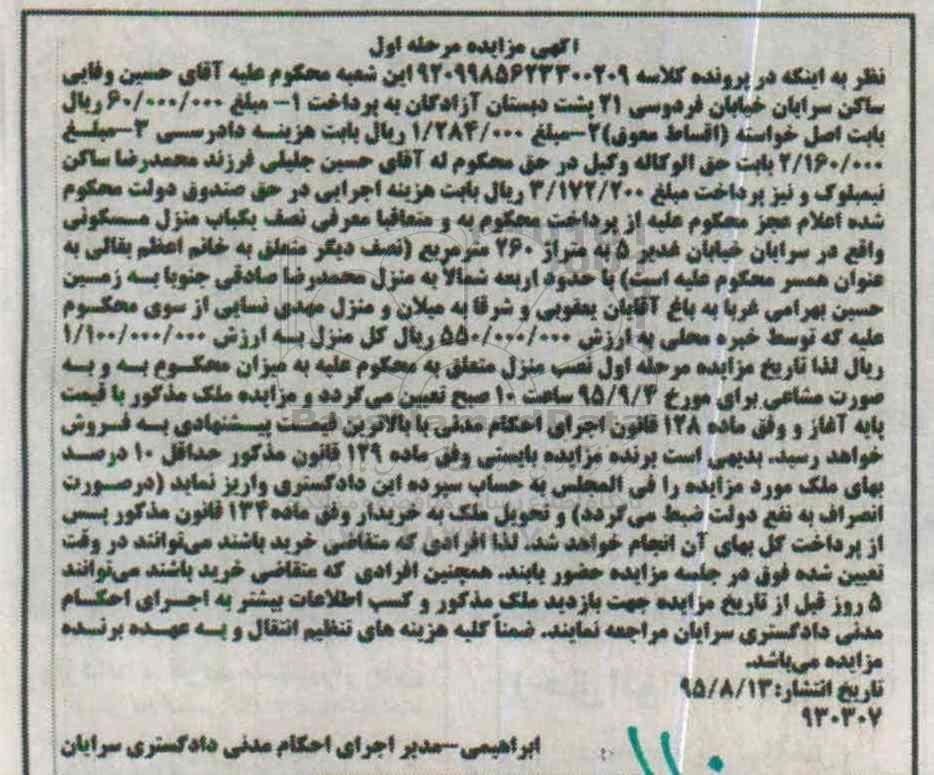 آگهی مزایده مرحله اول
نظر به اینکه در پرونده کلاسه ۹۲۰۹۹۸۵۶۲۳۳۰۰۲۰۹ این شعبه محکوم علیه آقای حسین وفایی
ساکن سرایان خیابان فردوسی ۲۱ پشت دبستان آزادگان به پرداخت ۱- مبلغ ۶۰/۰۰۰/۰۰۰ ریال
بابت اصل خواسته (اقساط معوق)۲-مبلغ ۱/۲۸۴/۰۰۰ ریال بابت هزینه دادرسی ۳-مبلغ
۲/۱۶۰/۰۰۰ بابت حق الوکاله وکیل در حق محکوم له آقای حسین جلیلی فرزند محمدرضا ساکن
نیمبلوک و نیز پرداخت مبلغ ۳/۱۷۲/۲۰۰ ریال بابت هزینه اجرایی در حق صندوق دولت محکوم
شده اعلام عجز محکوم علیه از پرداخت محکوم به و متعاقبا معرفی نصف یکباب منزل مسکونی
واقع در سرایان خیابان غدیر ۵ به متراژ ۲۶۰ مترمربع (نصف دیگر متعلق به خانم اعظم بقالی به
عنوان همسر محکوم علیه است) با حدود اربعه شمالا به منزل محمدرضا صادقی جنوبا به زمین
حسین بهرامی غربا به باغ آقایان یعقوبی و شرقا به میلان و منزل مهدی نسایی از سوی محکوم
علیه که توسط خبره محلی به ارزش ۵۵۰/۰۰۰/۰۰۰ ریال کل منزل به ارزش ۱/۱۰۰/۰۰۰/۰۰۰
ریال لذا تاریخ مزایده مرحله اول نصب منزل متعلق به محکوم علیه به میزان محکوم به و به
صورت مشاعی برای مورخ ۹۵/۹/۴ ساعت ۱۰ صبح تعیین می‌گردد و مزایده ملک مذکور با قیمت
پایه آغاز و وفق ماده ۱۲۸ قانون اجرای احکام مدنی با بالاترین قیمت پیشنهادی به فروش
خواهد رسید. بدیهی است برنده مزایده بایستی وفق ماده ۱۲۹ قانون مذکور حداقل ۱۰ درصد
بهای ملک مورد مزایده را فی المجلس به حساب سپرده این دادگستری واریز نماید (درصورت
انصراف به نفع دولت ضبط می‌گردد) و تحویل ملک به خریدار وفق ماده۱۳۴ قانون مذکور پس
از پرداخت کل بهای آن انجام خواهد شد. لذا افرادی که متقاضی خرید باشند می‌توانند در وقت
تعیین شده فوق در جلسه مزایده حضور یابند. همچنین افرادی که متقاضی خرید باشند می‌توانند
۵ روز قبل از تاریخ مزایده جهت بازدید ملک مذکور و کسب اطلاعات بیشتر به اجرای احکام
مدنی دادگستری سرایان مراجعه نمایند. ضمناً کلیه هزینه های تنظیم انتقال و به عهده برنده
مزایده می‌باشد.
تاریخ انتشار: ۹۵/۸/۱۳
۹۳۰۳۰۷
ابراهیمی-مدیر اجرای احکام مدنی دادگستری سرایان